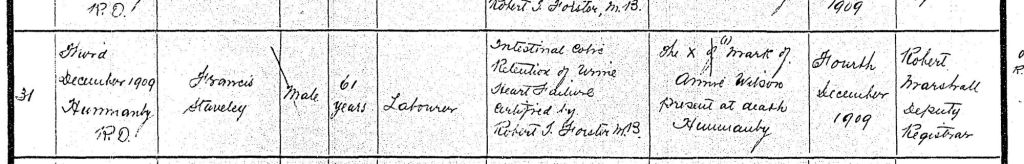 R.D.
Robert T. Forster, M.B.
1909
31
Third
December 1909
Hunmanby
R.D.
Francis
Staveley
Male
61
years
Labourer
Intestinal Colic
Retention of Urine
Heart Failure
Certified by
Robert T. Forster M.B.
The X of (1) mark of
Annie Wilson
Present at death
Hunmanby
Fourth
December
1909
Robert
Marshall
Deputy
Registrar